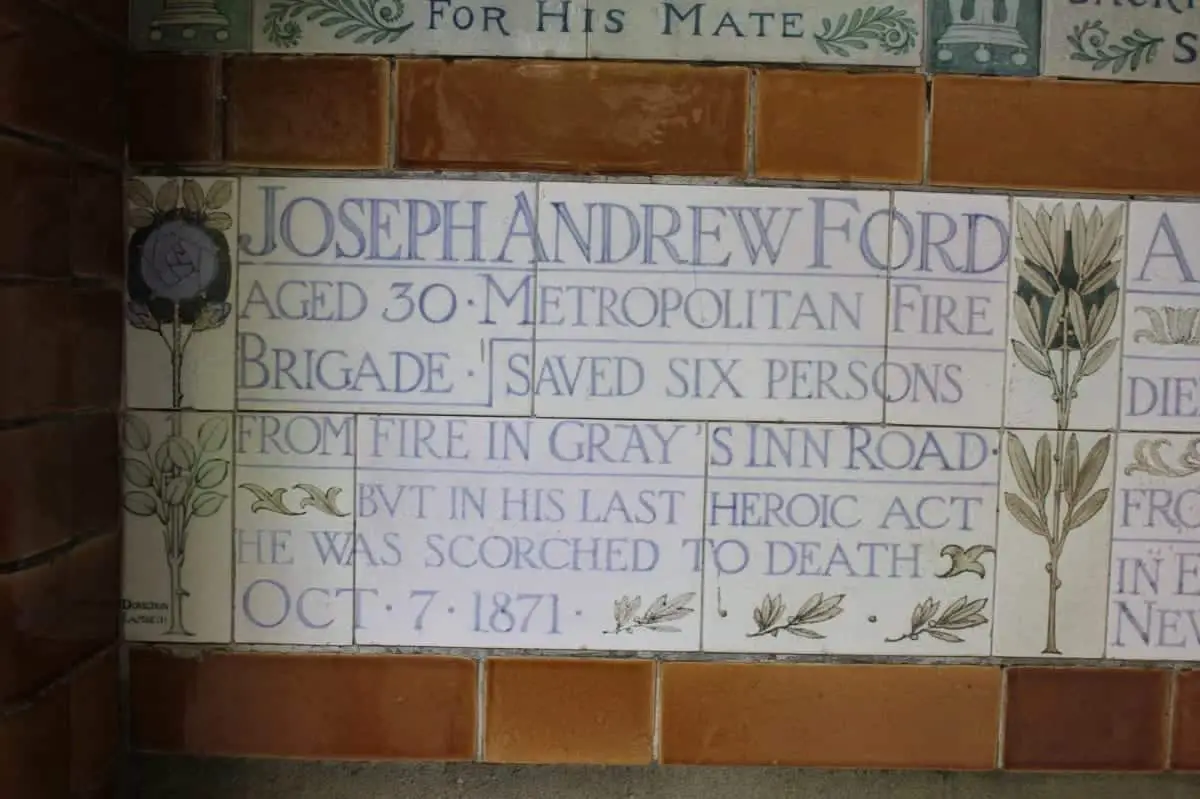 FOR HIS MATE
JOSEPH ANDREW FORD
AGED 30 · METROPOLITAN FIRE
BRIGADE · SAVED SIX PERSONS
FROM FIRE IN GRAY'S INN ROAD ·
BVT IN HIS LAST HEROIC ACT
HE WAS SCORCHED TO DEATH
OCT · 7 · 1871 ·
A
DIE
FRO
IN E
NEV